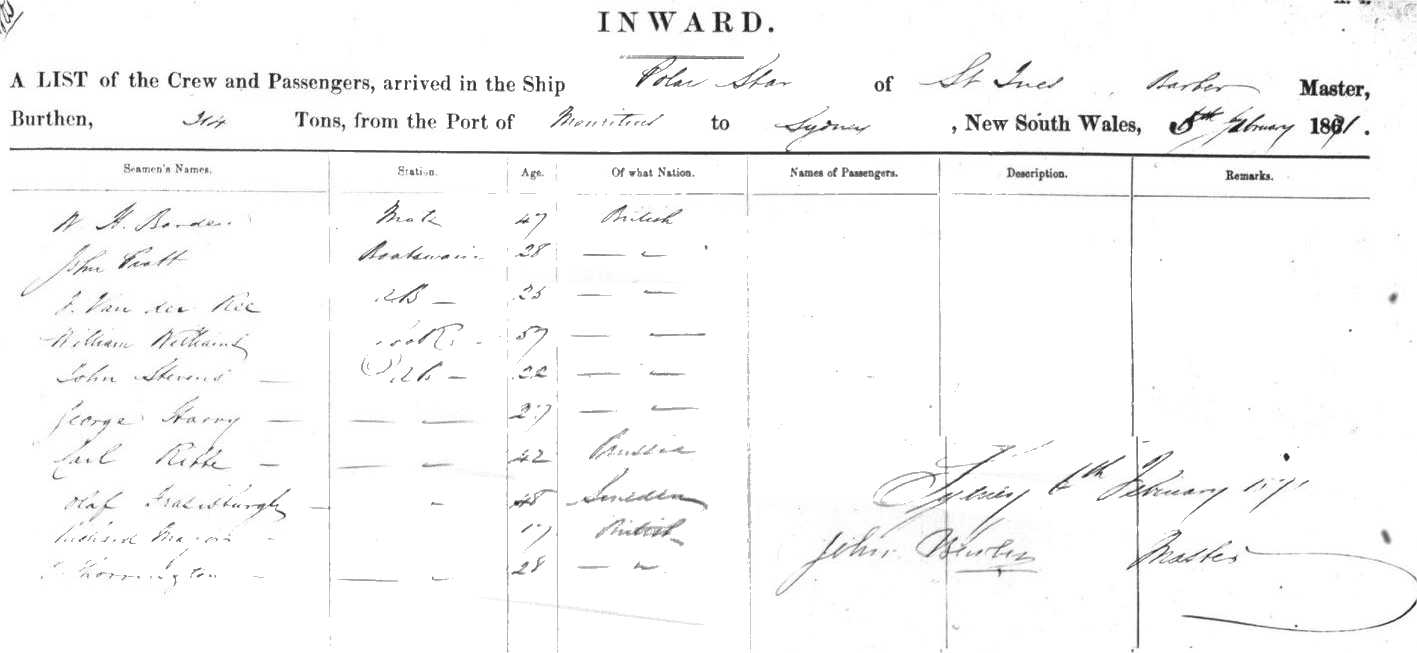 INWARD.
A LIST of the Crew and Passengers, arrived in the Ship Polar Star of St Ives, Barber Master,
Burthen, Tons, from the Port of Mauritius to Sydney, New South Wales, 5th February 1871.
Seamen's Names. Station. Age. Of what Nation. Names of Passengers. Description. Remarks.
W H Borden Mate 47 British
John Pratt Boatswain 28 — "
J. Van der Kee AB — 25 — —
William Williams Cook 57 — —
John Stevens — AB — 22 — —
George Harry — — — 27 — —
Carl Ritte — — — 42 Prussia
Olaf — " 48 Sweden
Richard - 17 British
J Thornington — — " 28 — "
Sydney 6th February 1871
John Barber Master